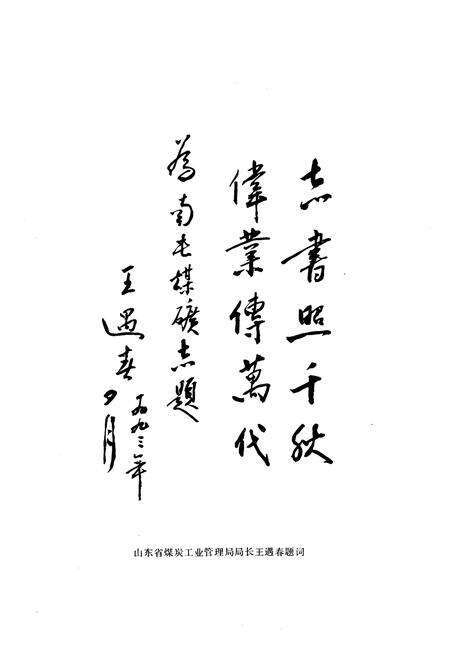 志書照千秋
偉業傳萬代
為南屯煤礦志題
王遇春
一九九三年
月
山东省煤炭工业管理局局长王遇春题词